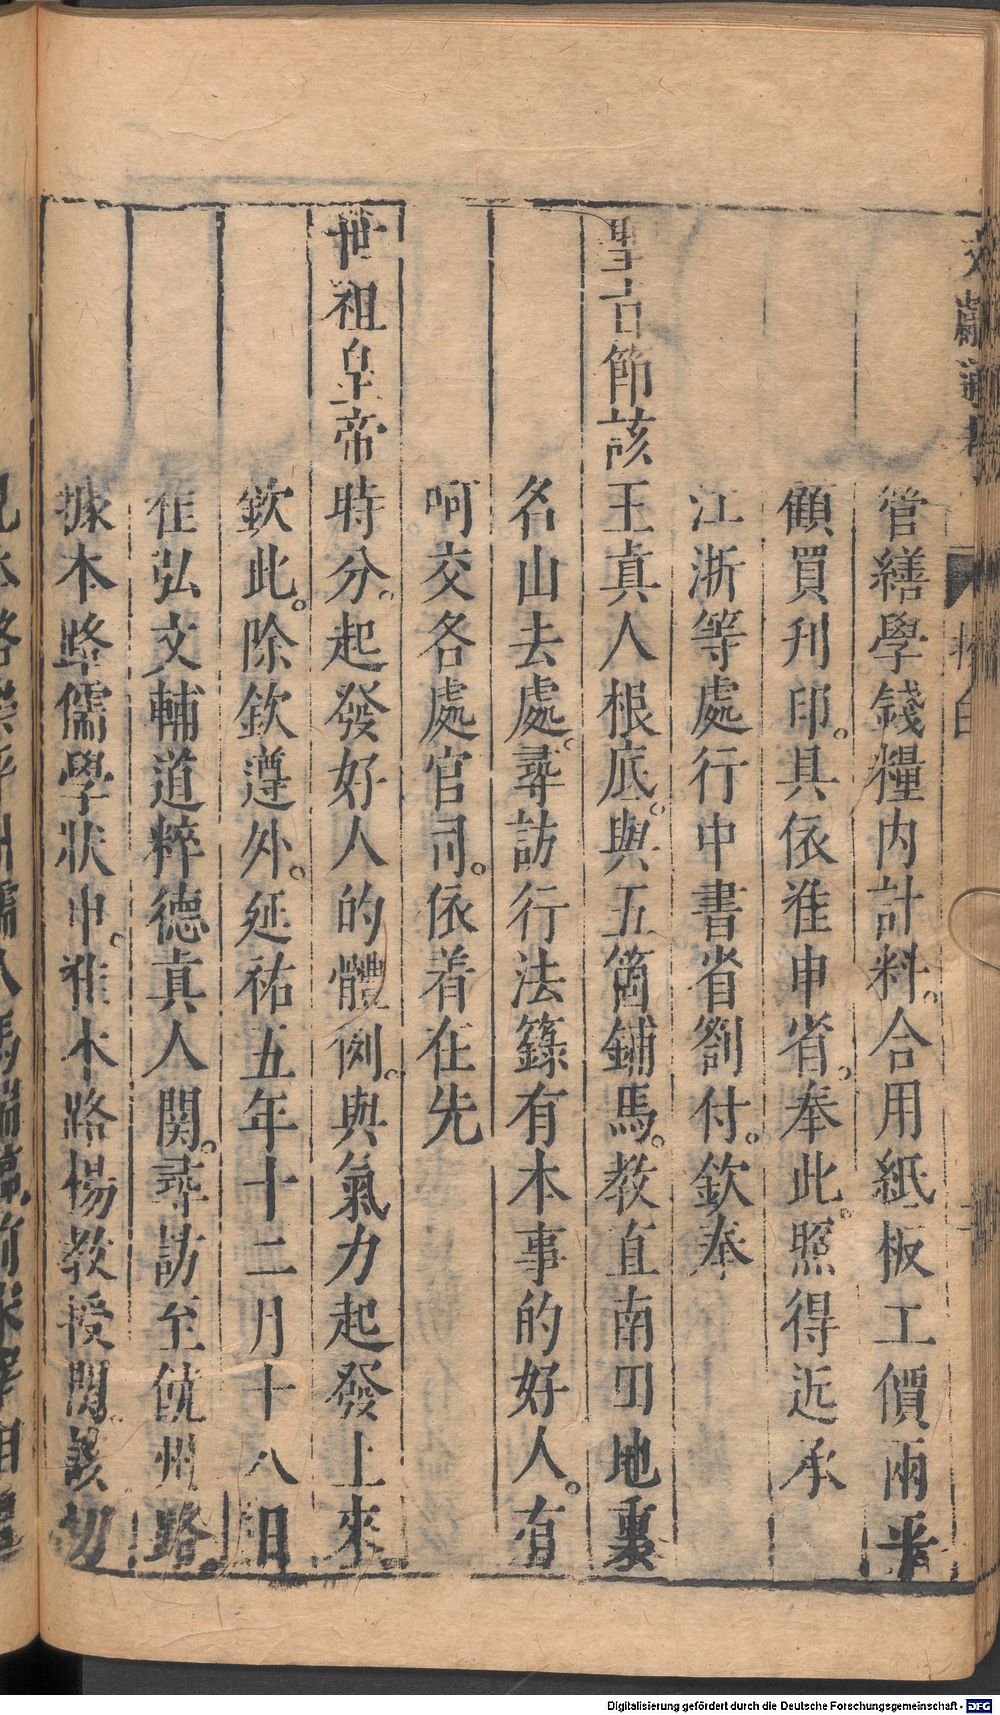 文獻通考
抄白
管繕學錢糧内計料。合用紙板工價兩平
顧買刋印。具依准申省。奉此。照得近承
江浙等處行中書省劄付。欽奉
聖旨節該王真人根底。與五箇鋪馬。教直南田地裏
名山去處。尋訪行法籙有本事的好人。有
呵交各處官司。依着在先
世祖皇帝時分。起發好人的體例。與氣力起發上來
欽此。除欽遵外。延祐五年十二月十八日
准弘文輔道粹德真人関。尋訪至饒州路。
據本路儒學狀申。准本路楊教授関。該切
見本路樂平州儒人馬端臨前宋宰相
Digitalisierung gefördert durch die Deutsche Forschungsgemeinschaft - DFG